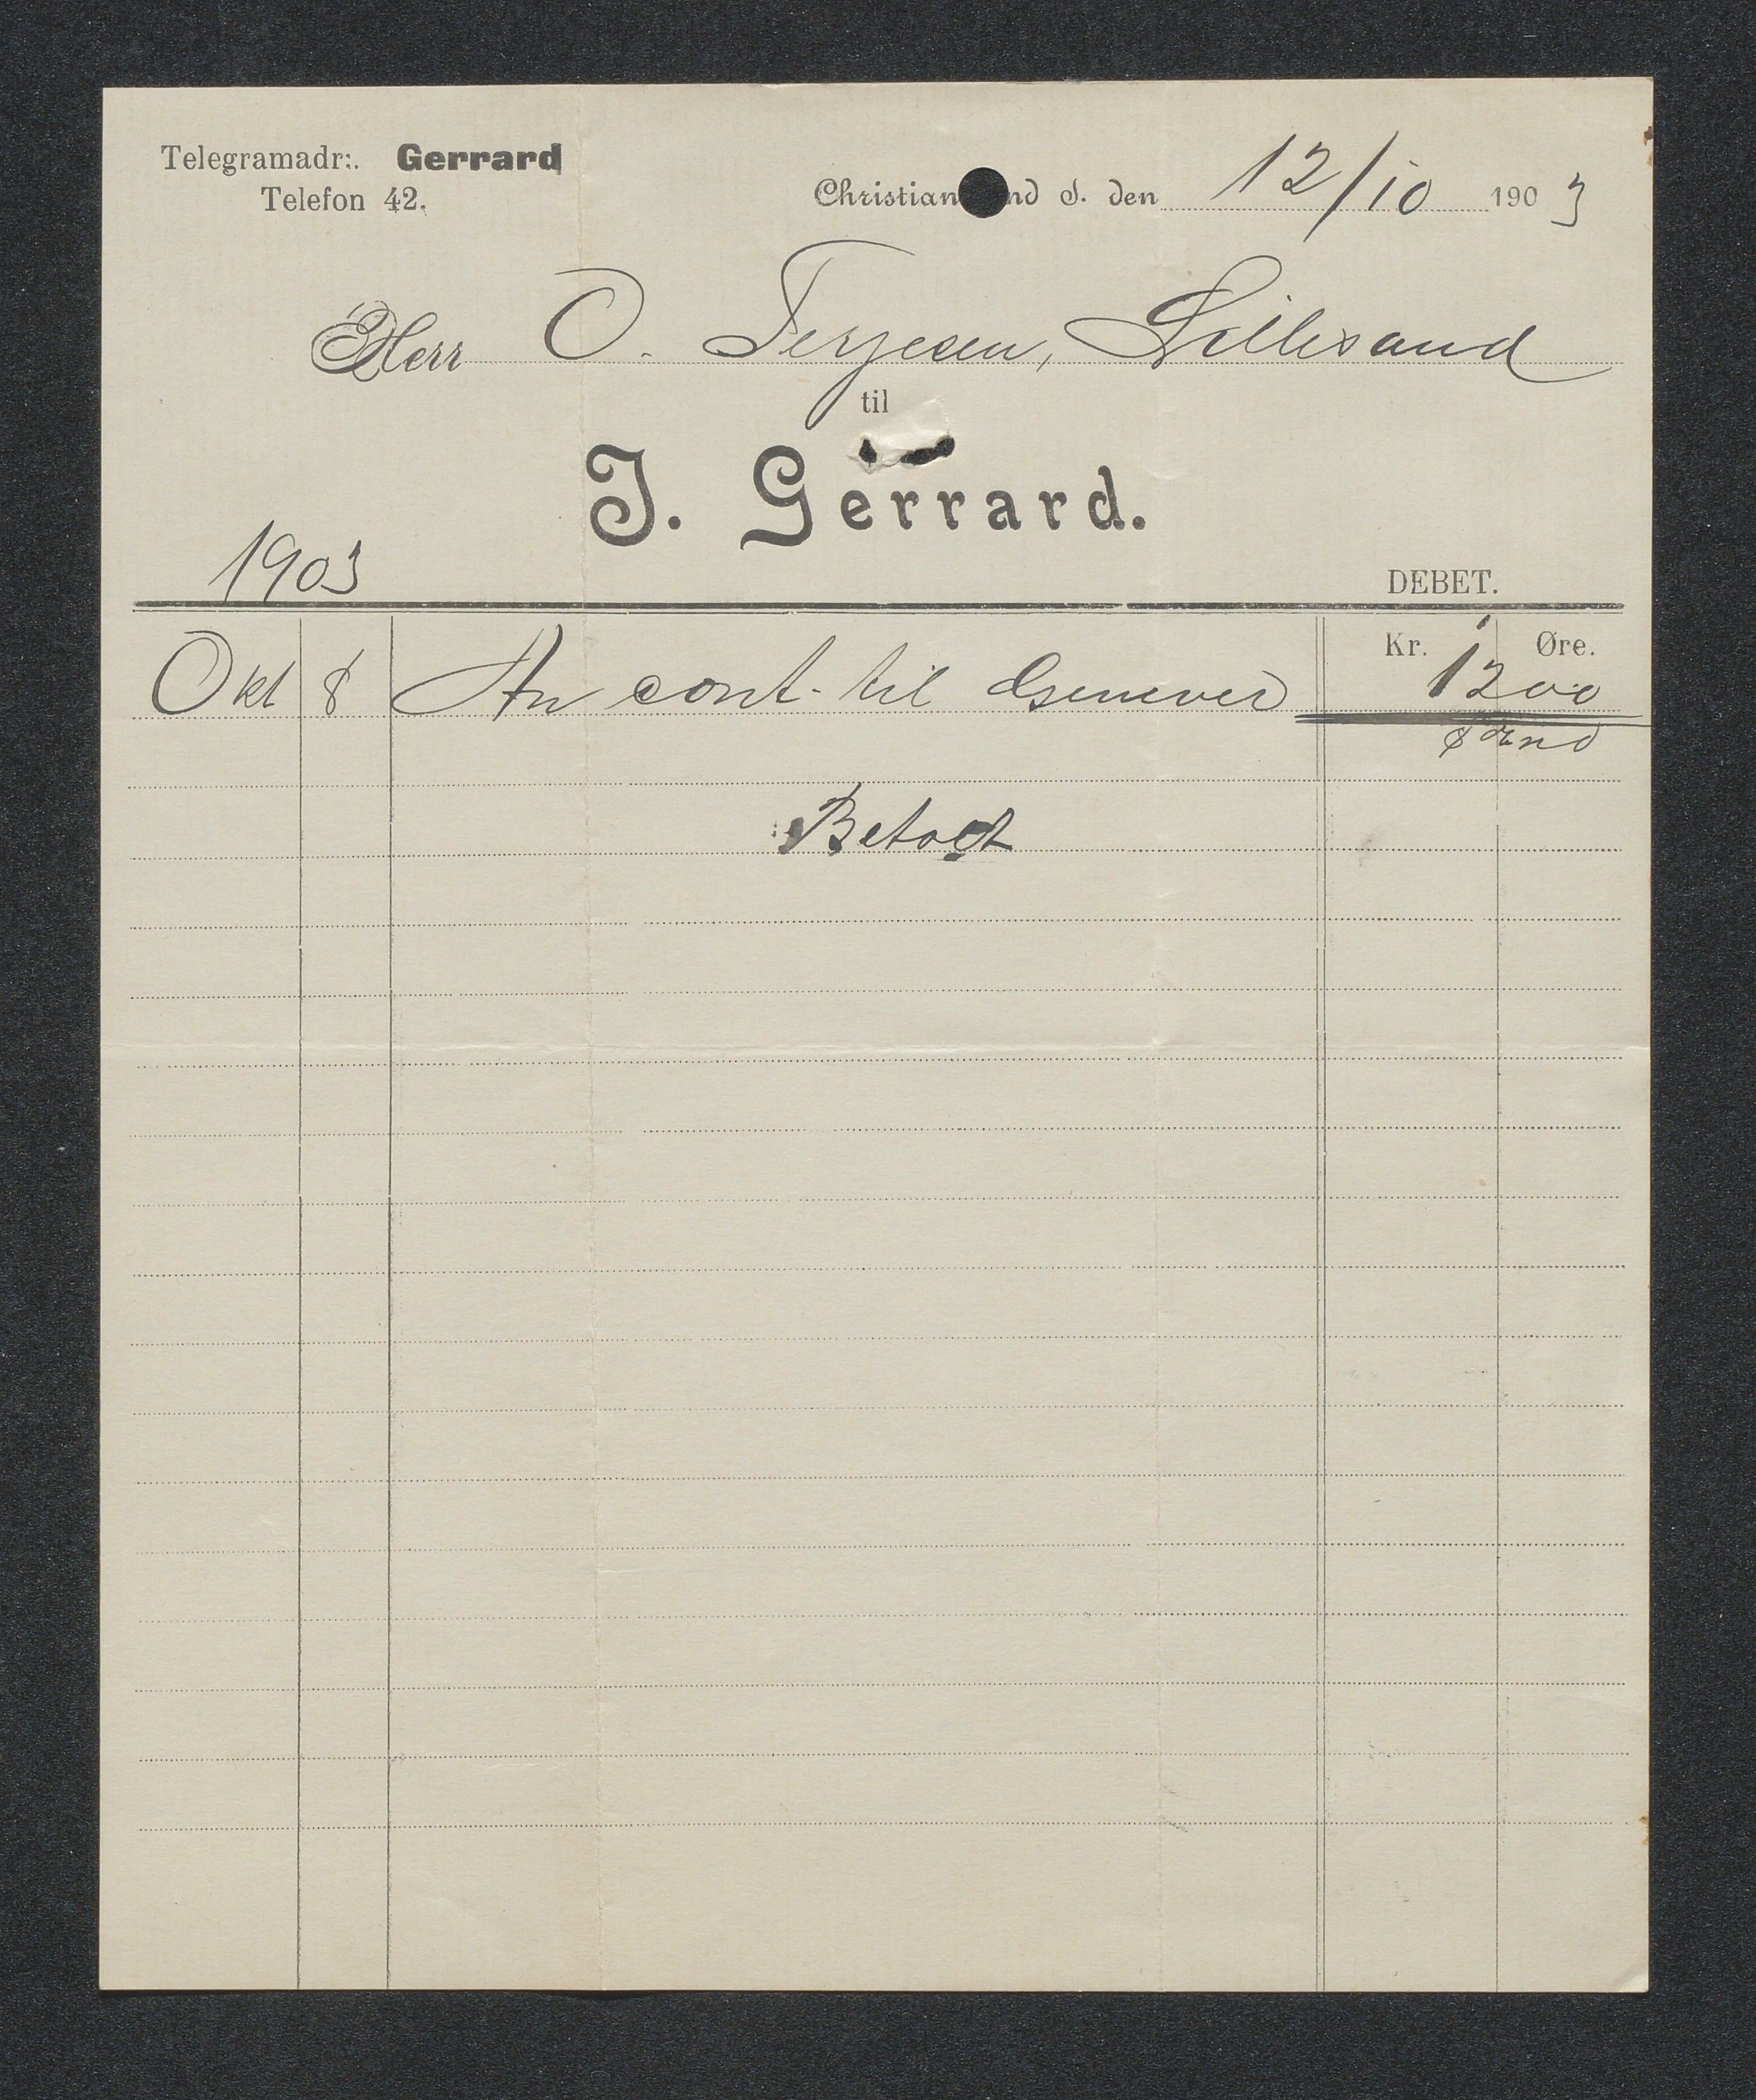 Telegramadr:. Gerrard
Telefon 42.
Christian nd S. den 12/10 1903
Herr O. Terjesen, Lillesand
til
J. Gerrard.
1903
DEBET.
Kr. Øre.
Okt 8 An cont. til Genever 12 00
Betalt